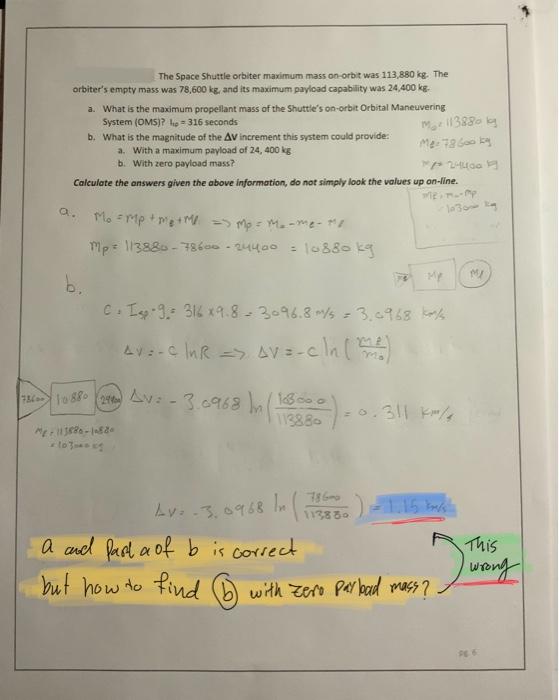 The Space Shuttle orbiter maximum mass on-orbit was 113,880 kg. The
orbiter's empty mass was 78,600 kg, and its maximum payload capability was 24,400 kg.
a. What is the maximum propellant mass of the Shuttle's on-orbit Orbital Maneuvering
System (OMS)? Isp = 316 seconds
b. What is the magnitude of the ΔV increment this system could provide:
a. With a maximum payload of 24, 400 kg
b. With zero payload mass?
Calculate the answers given the above information, do not simply look the values up on-line.
Mo = 113880 kg
Me = 78600 kg
= 24400 kg
= 103000 kg
a. Mo = Mp + Me + Ml => Mp = Mo - Me - Ml
Mp = 113880 - 78600 - 24400 = 10880 kg
Mp Ml
b.
C = Isp·g₀ = 316 x 9.8 = 3096.8 m/s = 3.0968 km/s
ΔV = -C ln R => ΔV = -C ln (mf/mo)
78600 10880 24400
ΔV = - 3.0968 ln (103000/113880) = 0.311 km/s
Mf = 113880 - 10880
= 103000 kg
ΔV = -3.0968 ln (78600/113880) = 1.15 km/s
a and Part a of b is correct
but how to find (b) with zero payload mass?
This
wrong
PG 6